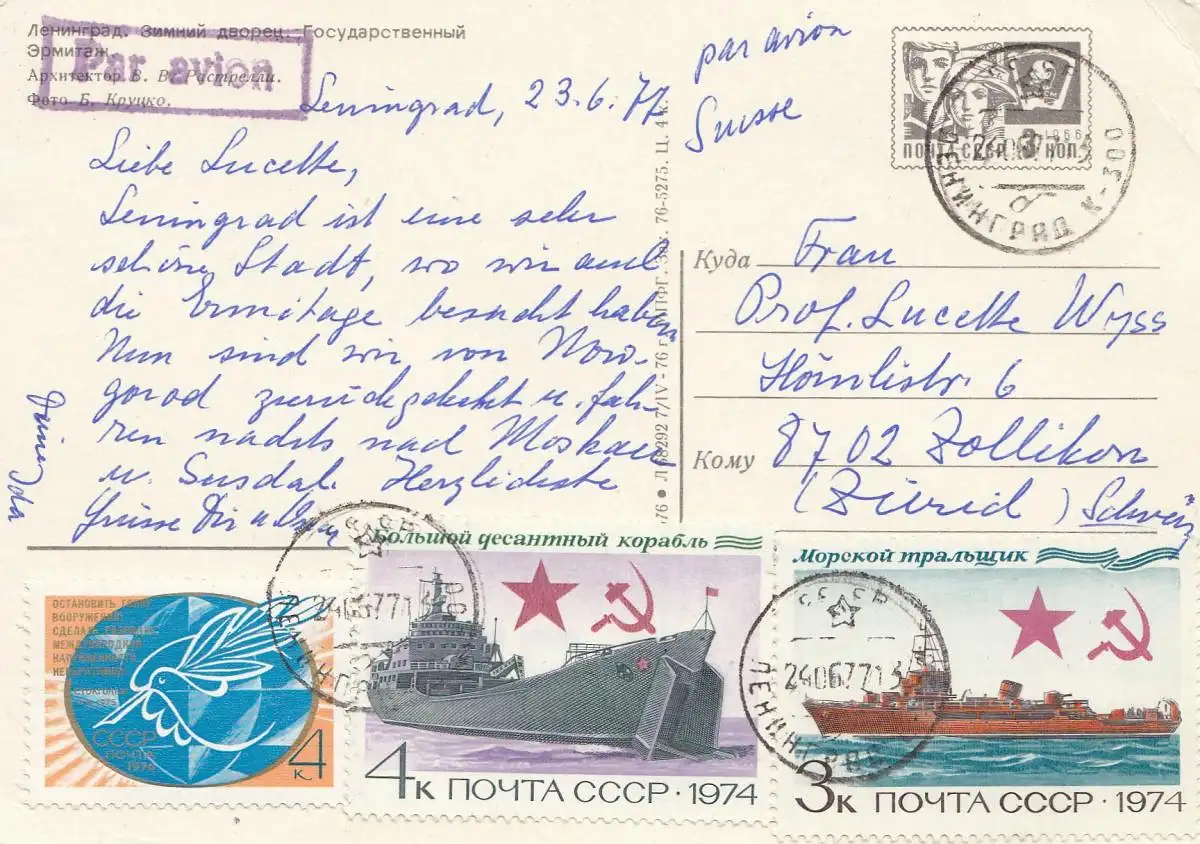 Ленинград. Зимний дворец. Государственный
Эрмитаж.
Архитектор В. В. Растрелли.
Фото Б. Круцко.
Par avion
Leningrad, 23.6.77
Liebe Lucette,
Leningrad ist eine sehr
schöne Stadt, wo wir auch
die Ermitage besucht haben
Nun sind wir von Now-
gorod zurückgekehrt u. fah-
ren nachts nach Moskau
u. Susdal. Herzlichste
Grüsse Dir u.
76-5275. Ц. 4 к.
7/IV-76 г.
par avion
Suisse
1966
ПОЧТА СССР 3 КОП.
СССР
ЛЕНИНГРАД К-300
Куда Frau
Prof. Lucette Wyss
6
Кому 8702 Zollikon
(Zürich) Schweiz
ОСТАНОВИТЬ ГОНКУ
ВООРУЖЕНИЙ
СДЕЛАТЬ РАЗРЯДКУ
МЕЖДУНАРОДНОЙ
НАПРЯЖЕННОСТИ
НЕОБРАТИМОЙ
СТОКГОЛЬМ
1975
СССР
ПОЧТА
1976
4 к.
Большой десантный корабль
4к ПОЧТА СССР · 1974
СССР
24067713
Морской тральщик
3к ПОЧТА СССР · 1974
СССР
24067713